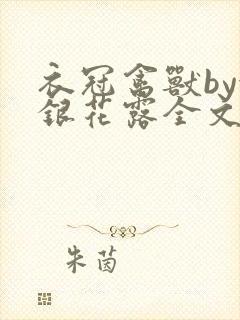 衣冠禽獸by
銀花露全文
朱茵